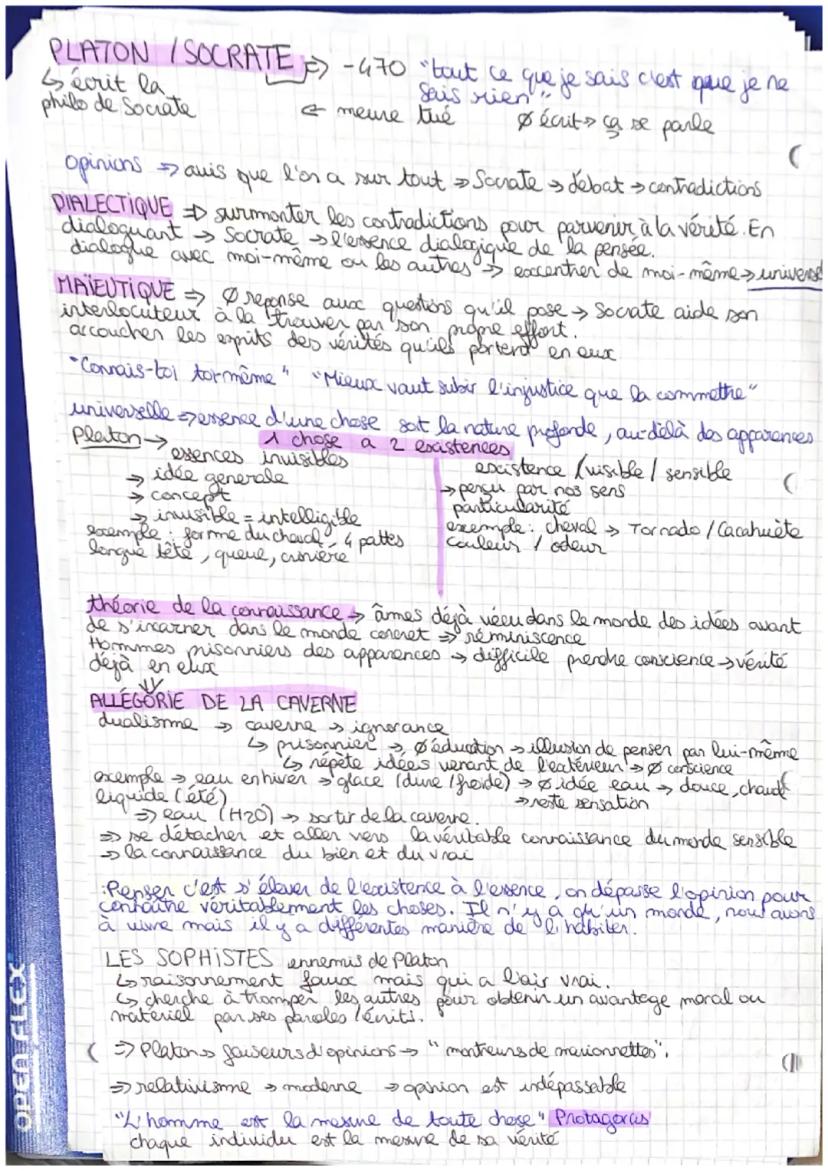 PLATON / SOCRATE => -470 "tout ce que je sais c'est que je ne
sais rien"
↳ écrit la
philo de Socrate
← meure tué Ø écrit → ça se parle
opinions => avis que l'on a sur tout => Socrate → débat → contradictions
DIALECTIQUE => surmonter les contradictions pour parvenir à la vérité. En
dialoguant → Socrate → l'essence dialogique de la pensée.
dialogue avec moi-même ou les autres → excentrer de moi-même → universel
MAÏEUTIQUE => Ø reponse aux questions qu'il pose → Socrate aide son
interlocuteur à la trouver par son propre effort.
accoucher les esprits des vérités qu'ils portent en eux
"Connais-toi toi-même" "Mieux vaut subir l'injustice que la commettre"
universelle => essence d'une chose soit la nature profonde, au-delà des apparences
Platon → 1 chose a 2 existences
essences invisibles
→ idée generale
→ concept
→ invisible = intelligible
exemple : forme du cheval - 4 pattes
longue tête, queue, crinière
existence (visible / sensible
→ perçu par nos sens
particularité
exemple : cheval → Tornado / Cacahuète
couleur / odeur
théorie de la connaissance → âmes déjà vécu dans le monde des idées avant
de s'incarner dans le monde concret => réminiscence
Hommes prisonniers des apparences → difficile prendre conscience → vérité
déjà en eux
ALLÉGORIE DE LA CAVERNE
dualisme → caverne → ignorance
↳ prisonnier → Ø éducation → illusion de penser par lui-même
↳ répète idées venant de l'extérieur → Ø conscience
exemple → eau en hiver → glace (dure / froide) → Ø idée eau → douce, chaude
liquide (été) → reste sensation
=> eau (H2O) → sortir de la caverne.
=> se détacher et aller vers la véritable connaissance du monde sensible
→ la connaissance du bien et du vrai
:Penser c'est s'élever de l'existence à l'essence, on dépasse l'opinion pour
connaître véritablement les choses. Il n'y a qu'un monde, nous avons
à vivre mais il y a différentes manière de l'habiter.
LES SOPHISTES ennemis de Platon
↳ raisonnement faux mais qui a l'air vrai.
↳ cherche à tromper les autres pour obtenir un avantage moral ou
matériel par ses paroles / écrits.
=> Platon → faiseurs d'opinions → "montreurs de marionnettes".
=> relativisme → moderne → opinion est indépassable
"L'homme est la mesure de toute chose" Protagoras
chaque individu est la mesure de sa vérité
OPEN FLEX